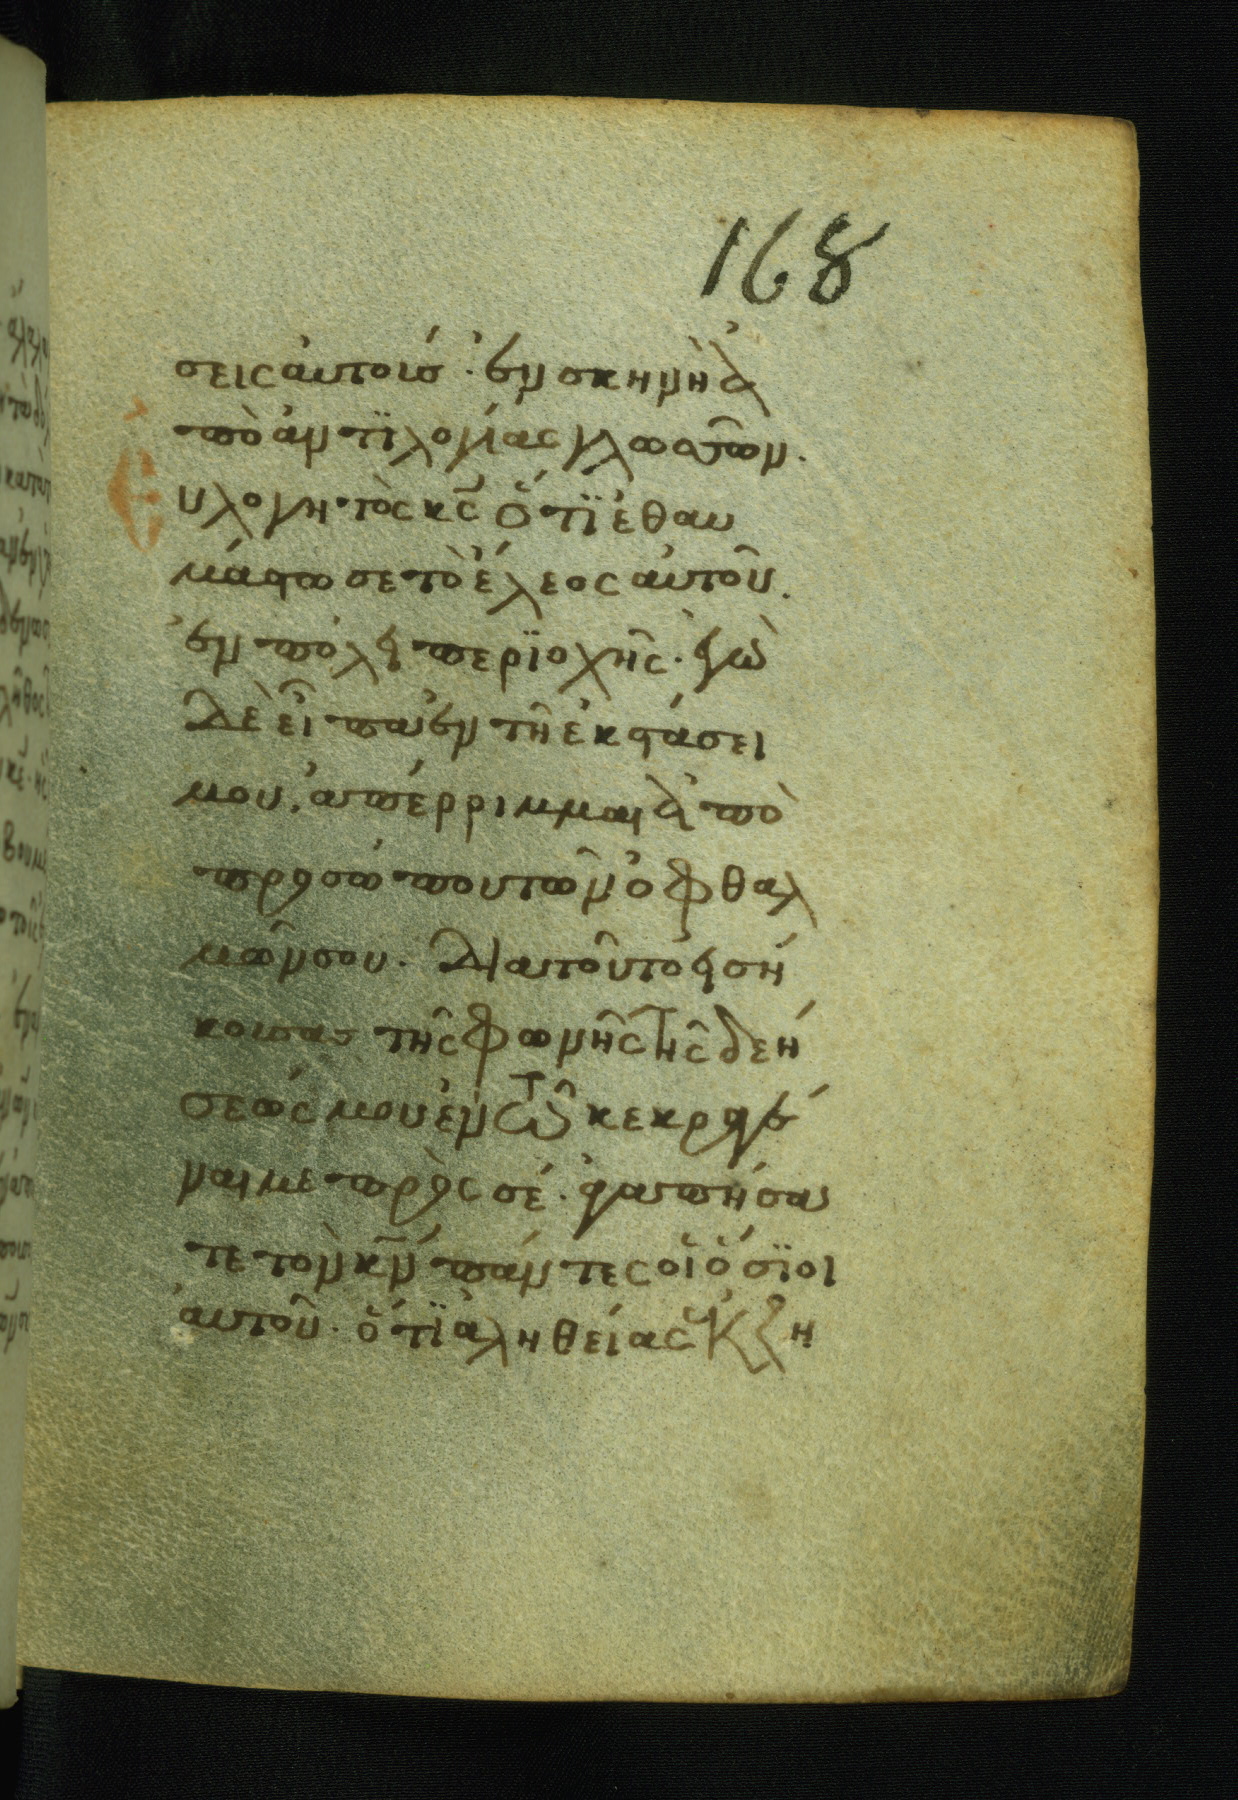 168
σεις αὐτούσ. ἐν σκηνὴ ἀ
πὸ ἀντϊλογίας γλωσσῶν.
Ευλογητὸς κ̅ς̅ ὅτϊ ἐθαυ
μάστωσε τὸ ἔλεος αὐτοῦ.
ἐν πόλει περϊοχῆς. ἐγὼ
δὲ εἶπα ἐν τῆ ἐκστάσει
μου, ἀπέρριμμαι ἀπὸ
προσώπου τῶν ὀφθαλ
μῶν σου. Διατοῦτο εἰσή
κουσας τῆς φωνῆς τῆς δεή
σεώς μου ἐν τῶ κεκραγέ
ναι με πρὸς σέ. ἀγαπήσα
τε τὸν κ̅ν̅ πάντες οἱ ὅσϊοι
αὐτοῦ. ὅτϊ ἀληθείας ἐκζη